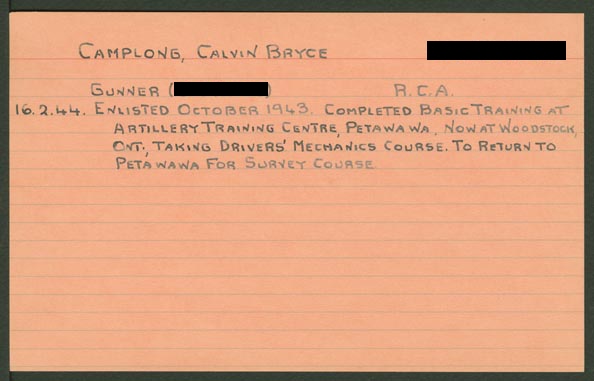 CAMPLONG, CALVIN BRYCE
GUNNER ( ) R.C.A.
16.2.44. ENLISTED OCTOBER 1943. COMPLETED BASIC TRAINING AT
ARTILLERY TRAINING CENTRE, PETAWAWA. NOW AT WOODSTOCK,
ONT., TAKING DRIVERS' MECHANICS COURSE. TO RETURN TO
PETAWAWA FOR SURVEY COURSE.